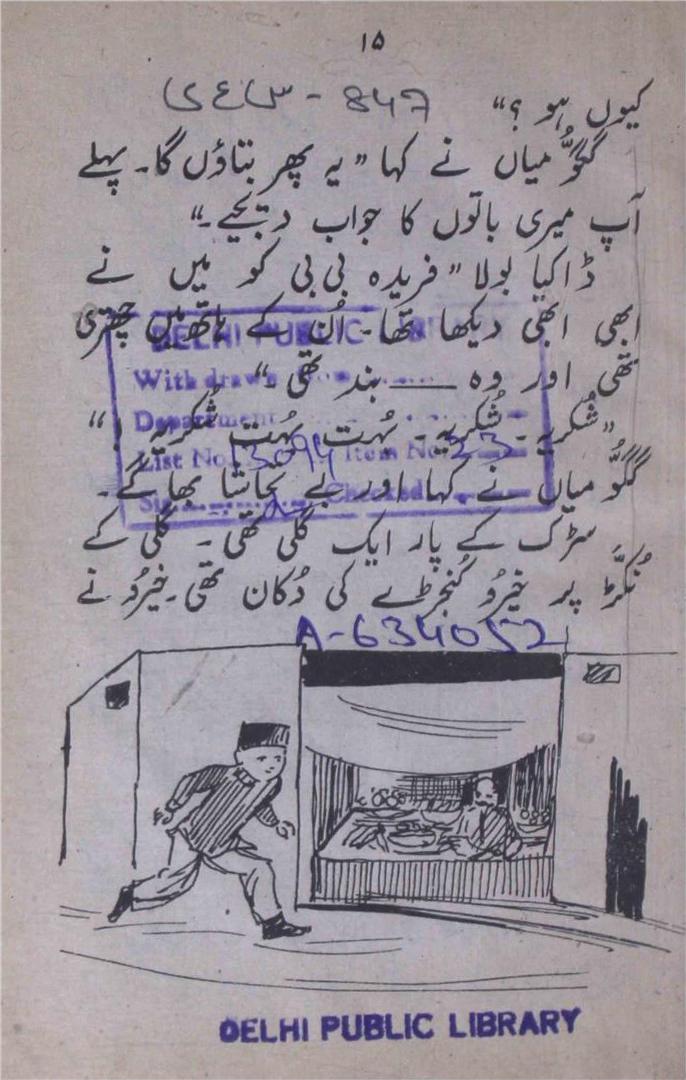 ۱۵
847 -
کیوں ہو ؟“
گگّو میاں نے کہا ”یہ پھر بتاؤں گا۔ پہلے
آپ میری باتوں کا جواب دیجیے۔“
ڈاکیا بولا ”فریدہ بی بی کو میں نے
ابھی ابھی دیکھا تھا۔ اُن کے ہاتھ میں چھتری
تھی اور وہ —— بند تھی۔“
”شُکریہ۔ شُکریہ۔ بہُت بہُت شُکریہ !“
گگّو میاں نے کہا اور بے تحاشا بھاگے۔
سڑک کے پار ایک گلی تھی۔ گلی کے
نُکّڑ پر خیرُو کُنجڑے کی دُکان تھی۔ خیرُو نے
DELHI PUBLIC
With drawn
Department
List No. 13094 Item No. 23
Checked
A-634052
DELHI PUBLIC LIBRARY